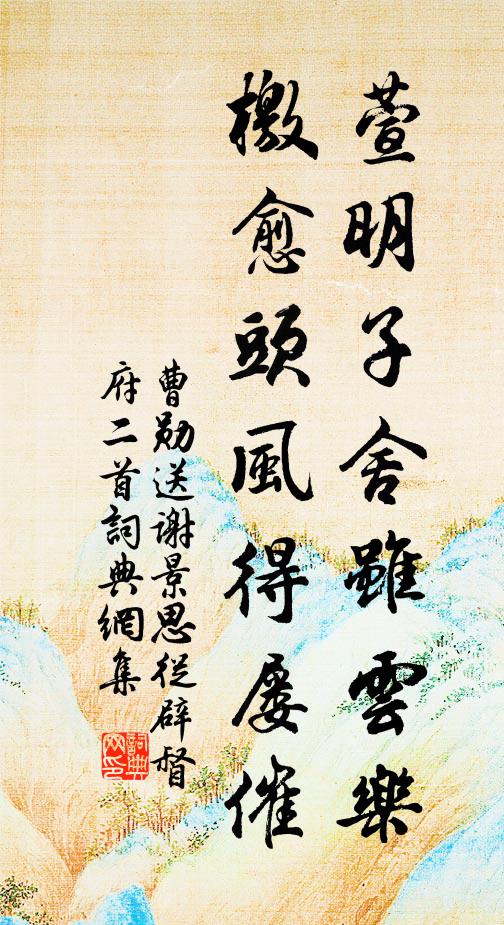 萱明子舍雖雲樂
檄愈頭風得屢催
曹勛送謝景思從辟督
府二首詞典網集
詞典
网印